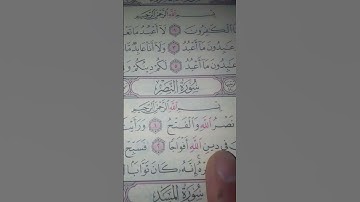 بِسْمِ اللَّهِ الرَّحْمَٰنِ الرَّحِيمِ
الْكَافِرُونَ ١ لَا أَعْبُدُ مَا تَعْ
عَابِدُونَ مَا أَعْبُدُ ٣ وَلَا أَنَا عَابِدٌ مَّا
عَابِدُونَ مَا أَعْبُدُ ٥ لَكُمْ دِينُكُمْ وَ
سُورَةُ النَّصْرِ
بِسْمِ اللَّهِ الرَّحْمَٰنِ الرَّحِيمِ
نَصْرُ اللَّهِ وَالْفَتْحُ ١ وَرَأَيْتَ
فِي دِينِ اللَّهِ أَفْوَاجًا ٢ فَسَبِّحْ
إِنَّهُ كَانَ تَوَّابًا
سُورَةُ الْمَسَدِ